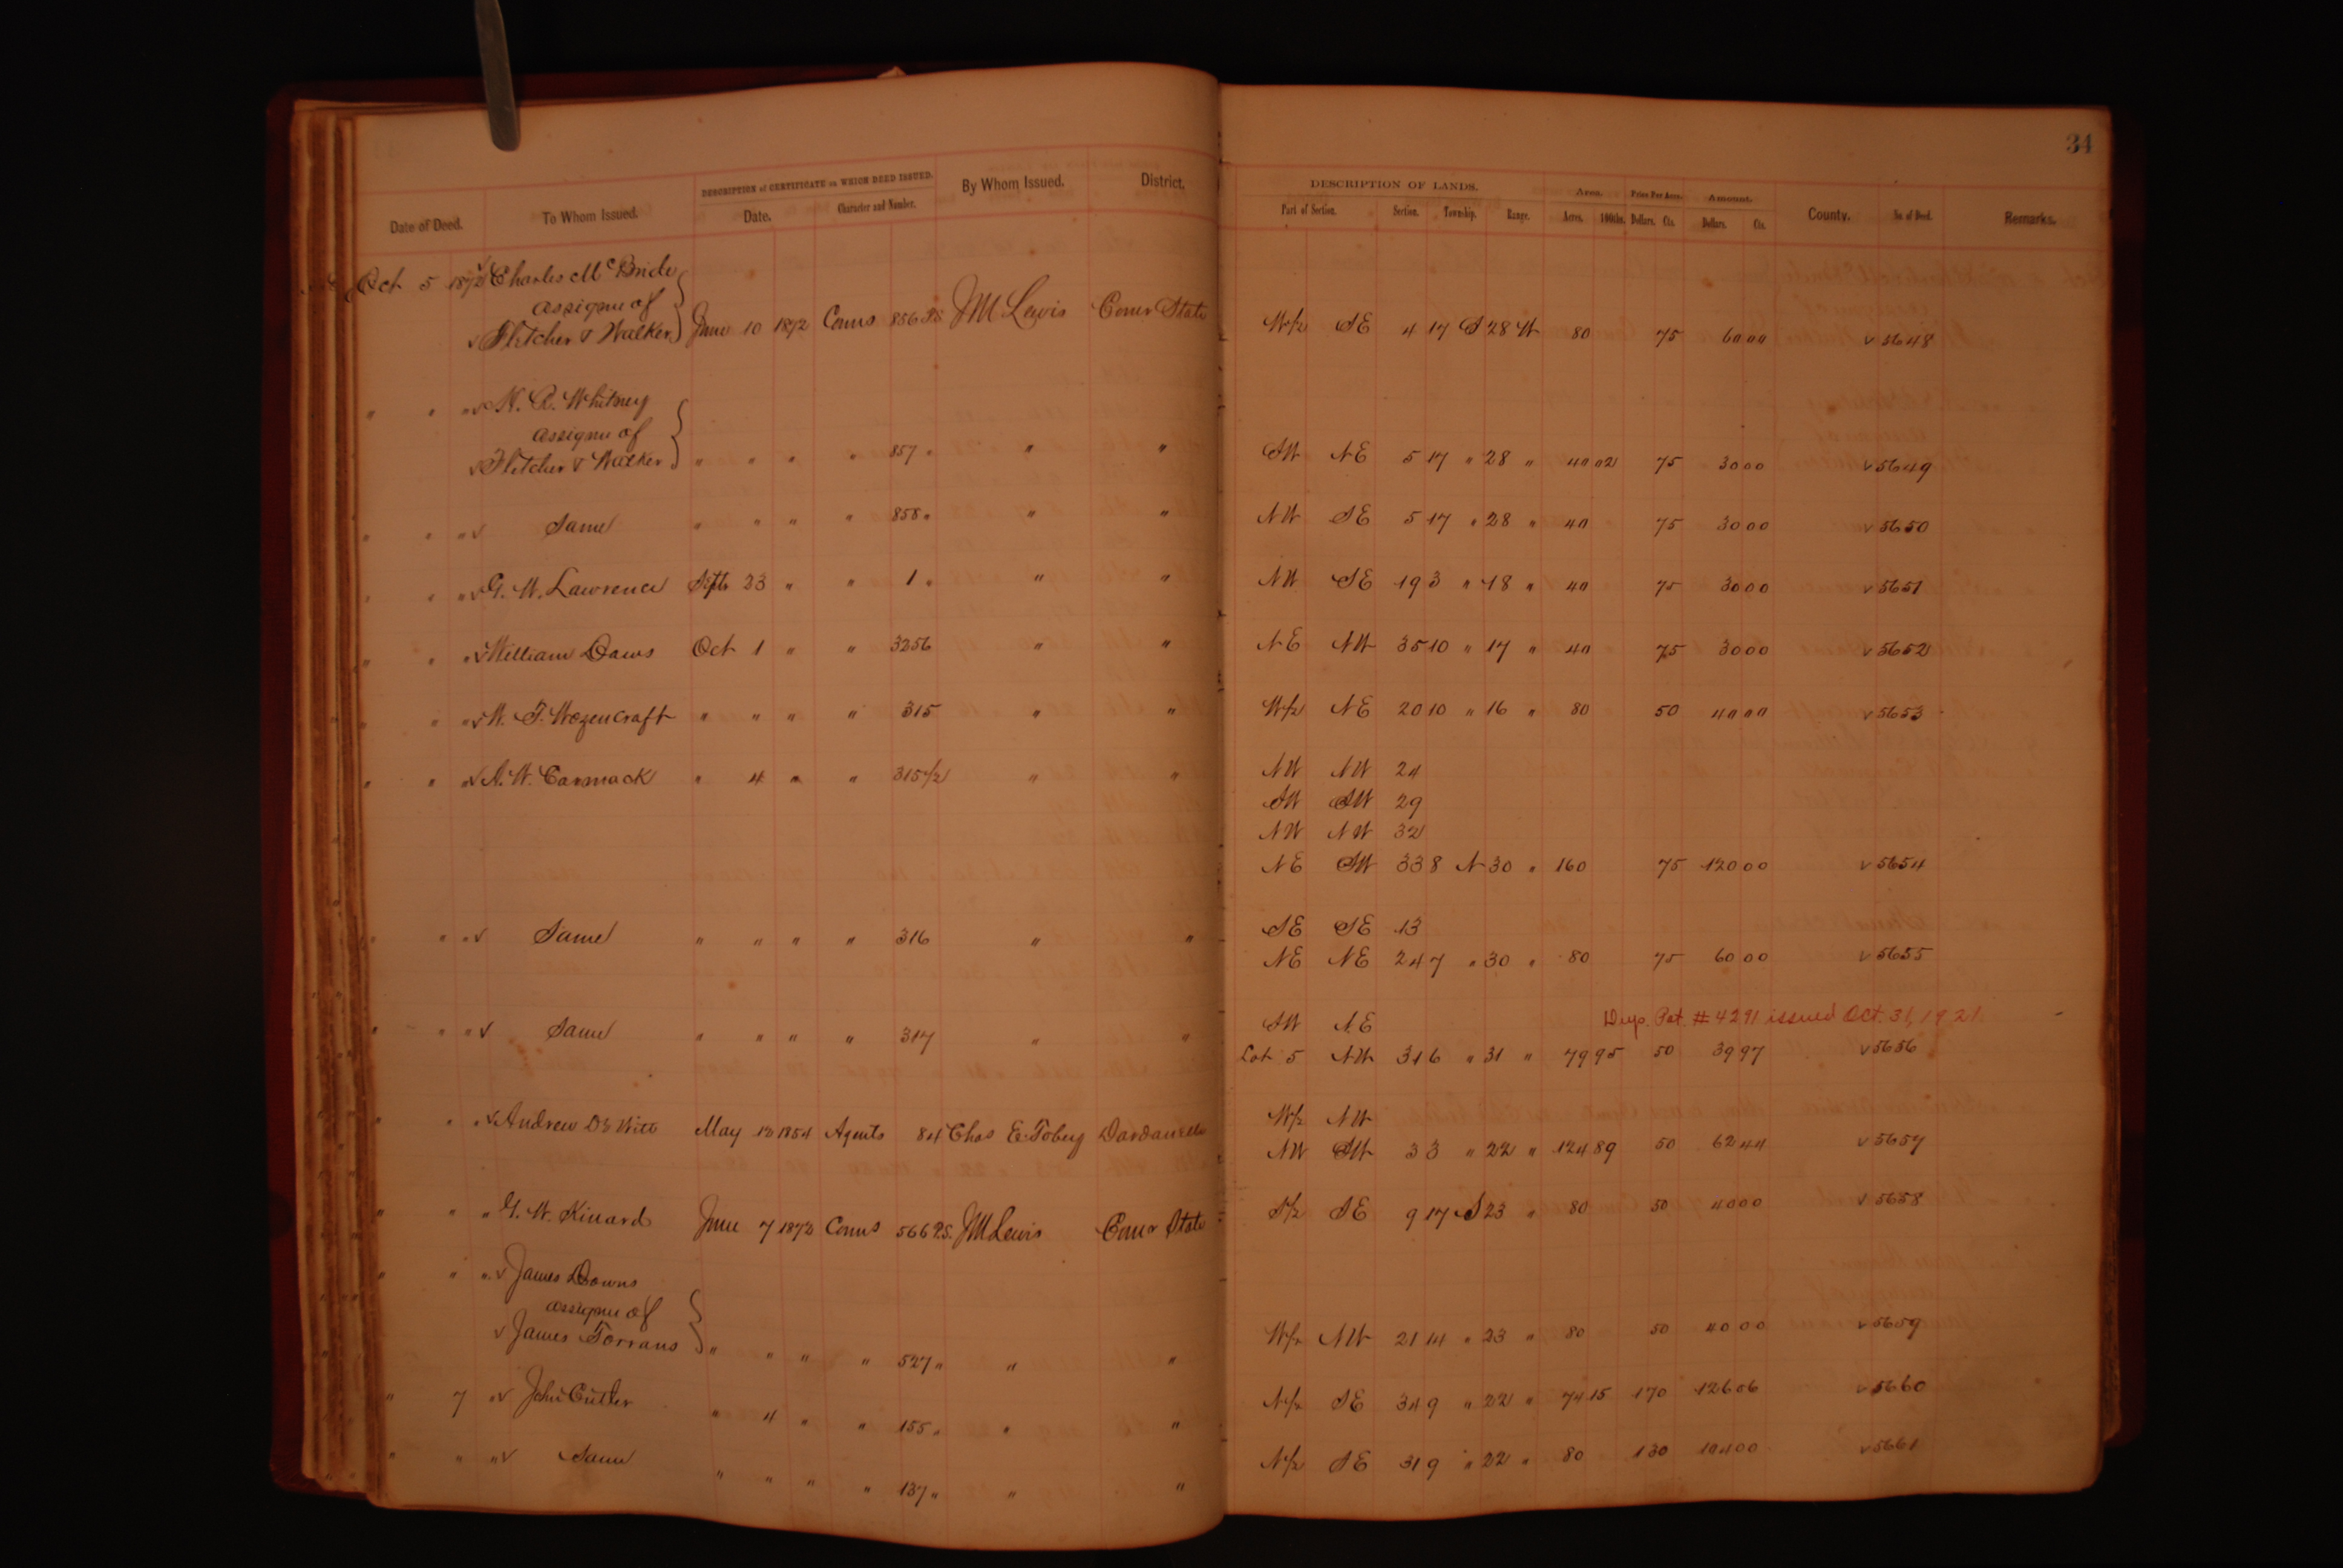 34
DESCRIPTION of CERTIFICATE on WHICH DEED ISSUED. DESCRIPTION OF LANDS. Area. Price Per Acre. Amount.
Date of Deed. To Whom Issued. Date. Character and Number. By Whom Issued. District. Part of Section. Section. Township. Range. Acres. 100ths. Dollars. Cts. Dollars. Cts. County. No. of Deed. Remarks.
Oct 5 1872 √ Charles McBride
assignee of
√ Fletcher & Walker } June 10 1872 Comrs 856 P.S. J M Lewis Comr State W/2 SE 4 17 S 28 W 80 75 60 00 √ 5648
" " " √ H. R. Whitney
assignee of
√ Fletcher & Walker } " " " " 857 " " " SW NE 5 17 " 28 " 40 02 75 30 00 √ 5649
" " " √ Same " " " " 858 " " " NW SE 5 17 " 28 " 40 75 30 00 √ 5650
" " " √ G. W. Lawrence Septr 23 " " 1 " " " NW SE 19 3 " 18 " 40 75 30 00 √ 5651
" " " √ William Daws Oct 1 " " 3256 " " NE NW 35 10 " 17 " 40 75 30 00 √ 5652
" " " √ W. F. Wozencraft " " " " 315 " " W/2 NE 20 10 " 16 " 80 50 40 00 √ 5653
" " " √ A. W. Carmack " 4 " " 315 1/2 " " NW NW 24
SW SW 29
NW NW 32
NE SW 33 8 N 30 " 160 75 120 00 √ 5654
" " " √ Same " " " " 316 " " SE SE 13
NE NE 24 7 " 30 " 80 75 60 00 √ 5655
Dup. Pat. # 4291 issued Oct. 31, 1921
" " " √ Same " " " " 317 " " SW NE
Lot 5 NW 31 6 " 31 " 79 95 50 39 97 √ 5656
" " " √ Andrew DeWitt May 12 1854 Agents 84 Chas E. Tobey Dardanelle W/2 NW
NW SW 3 3 " 22 " 124 89 50 62 44 √ 5657
" " " G. W. Kinard June 7 1872 Comrs 566 P.S. J M Lewis Comr State S/2 SE 9 17 S 23 " 80 50 40 00 √ 5658
" " " √ James Downs
assignee of
√ James Torrans } " " " " 527 " " " W/2 NW 21 14 " 23 " 80 50 40 00 √ 5659
" 7 " √ John Cutler " 4 " " 155 " " " N/2 SE 34 9 " 22 " 74 15 1 70 126 06 √ 5660
" " " √ Same " " " " 137 " " " N/2 SE 31 9 " 22 " 80 1 30 104 00 √ 5661